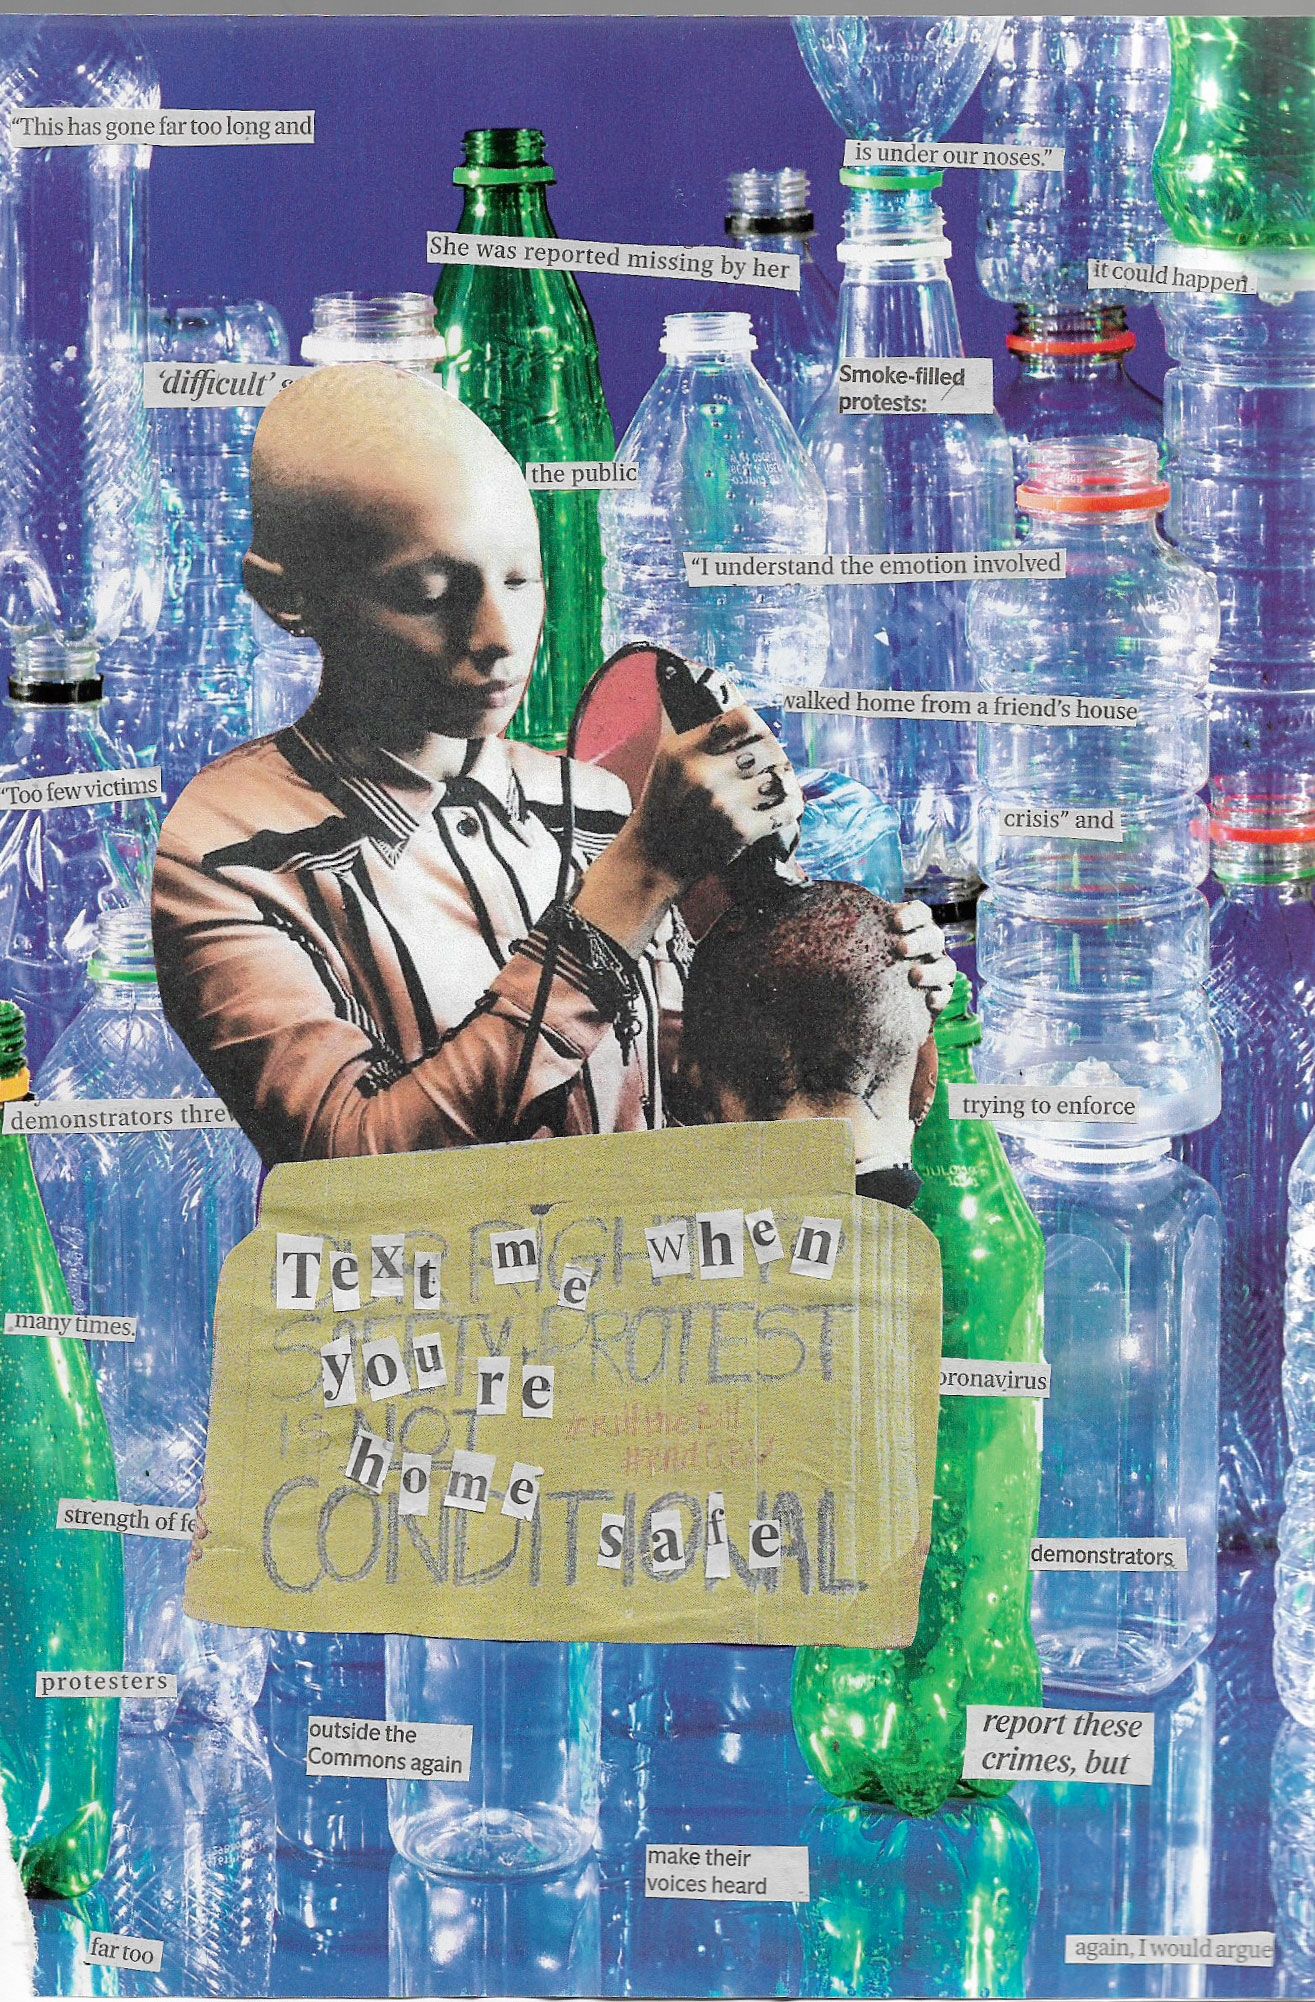 “This has gone far too long and
is under our noses.”
She was reported missing by her
it could happen
‘difficult’
Smoke-filled
protests:
the public
“I understand the emotion involved
walked home from a friend’s house
“Too few victims
crisis” and
demonstrators thre
trying to enforce
Text me when
you re
home
safe
OUR RIGHT
SAFETY, PROTEST
IS NOT
CONDITIONAL
many times.
oronavirus
strength of fe
demonstrators
protesters
outside the
Commons again
report these
crimes, but
make their
voices heard
far too
again, I would argue